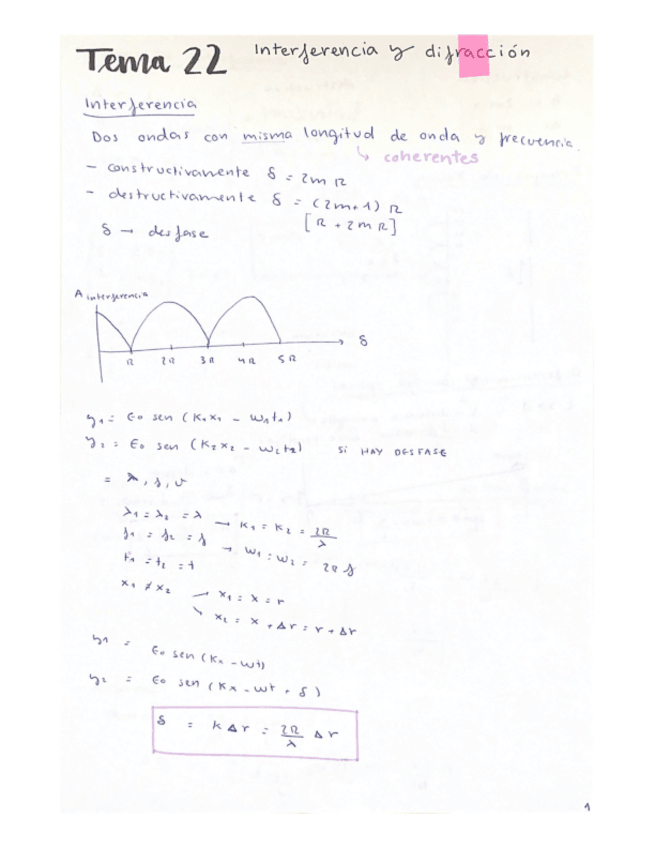 Tema 22 Interferencia y difracción
Interferencia
Dos ondas con misma longitud de onda y frecuencia.
↳ coherentes
- constructivamente δ = 2m π
- destructivamente δ = (2m+1) π
[π + 2m π]
δ → desfase
A interferencia
δ
π 2π 3π 4π 5π
y₁ = E₀ sen (K₁x₁ - w₁t₁)
y₂ = E₀ sen (K₂x₂ - w₂t₂) SI HAY DESFASE
= λ, f, v
λ₁ = λ₂ = λ → K₁ = K₂ = 2π/λ
f₁ = f₂ = f → w₁ = w₂ = 2π f
t₁ = t₂ = t
x₁ ≠ x₂ → x₁ = x = r
↘ x₂ = x + Δr = r + Δr
y₁ = E₀ sen (Kx - wt)
y₂ = E₀ sen (Kx - wt + δ)
δ = K Δr = 2π/λ Δr
1